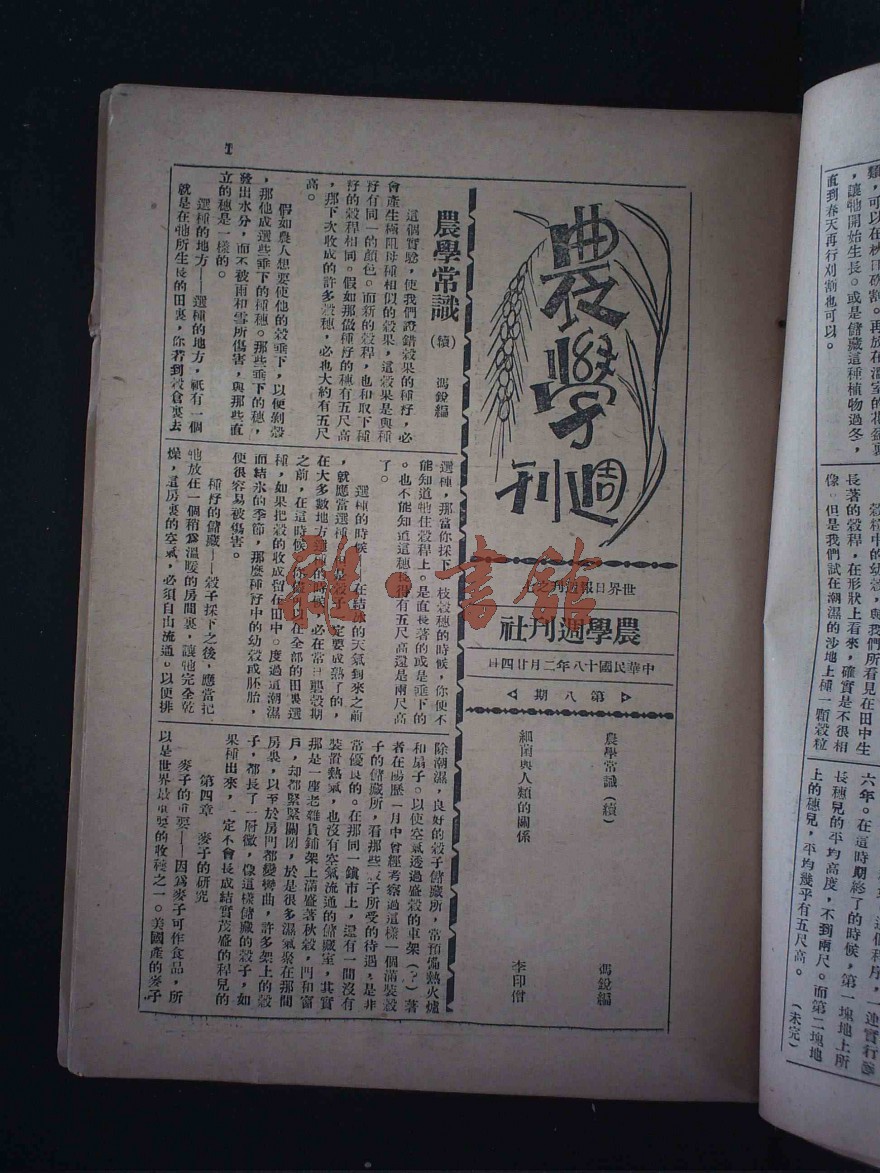 農學
週刊
世界日報週刊之七
農學週刊社
中華民國十八年二月廿四日
第八期
農學常識(續) 馮銳編
細菌與人類的關係 李印僧
農學常識(續) 馮銳編
這個實驗,使我們證錯穀果的種籽,必
會產生極阻母種相似的穀果,這穀果是與種
籽有同一的顏色。而新的穀稈,也和取下種
籽的穀稈相同。假如那做種籽的穗有五尺高
,那下次收成的許多穀穗,必也大約有五尺
高。
假如農人想要使他的穀垂下,以便剝穀
,那他成選些垂下的種穗。那些垂下的穗,
發出水分,而不被雨和雪所傷害,與那些直
立的穗是一樣的。
選種的地方——選種的地方,祇有一個
就是在牠所生長的田裏,你若到穀倉裏去
選種,那當你採下一枝穀穗的時候,你便不
能知道牠住穀稈上。是直長著的或是垂下的
。也不能知道這穗長得有五尺高還是兩尺高
了。
選種的時候 在結冰的天氣到來之前
,就應當選種。但是穀子一定要成熟了的,
在大多數地方選種的時候,必在常日割穀期
之前,在這時候,你儘可以在全部的田裏選
種,如果把穀的收成留在田中。度過這潮濕
而結氷的季節,那麼種籽中的幼穀或胚胎,
便很容易被傷害。
種籽的儲藏——穀子採下之後,應當把
牠放在一個稍爲溫暖的房間裏,讓牠完全乾
燥,這房裏的空氣,必須自山流通。以便排
除潮濕,良好的穀子儲藏所,當預備熱火爐
和扇子。以使空氣透過盛穀的車架(?)著
者在陽歷一月中曾經考察過這樣一個滿裝穀
子的儲藏所,看那些子所受的待遇,是非
常優良的。在那同一鎭市上,還有一間沒有
裝置熱氣,也沒有空氣流通的儲藏室,其實
那是一座老雜貨鋪架上滿盛著秋穀,門和窗
戶,却都緊緊關閉,於是很多濕氣聚在那間
房裏,以至於房門都變彎曲,許多架上的穀
子,都長了一層黴,像這樣儲藏的穀子,如
果種出來,一定不會長成結實茂盛的稈兒的
第四章 麥子的研究
麥子的重要——因爲麥子可作食品,所
以是世界最重要的收穫之一。美國產的麥子
類,可以在秋日砍割。再放在溫室的花盆裏
,讓牠開始生長。或是儲藏這種植物過冬,
直到春天再行刈割也可以。
穀粒中的幼穀,與我們所看見在田中生
長著的穀稈,在形狀上看來,確實是不很相
像。但是我們試在潮濕的沙地上種一顆穀粒
六年。在這時期終了的時候,第一塊地上所
長穗兒的平均高度,不到兩尺。而第二塊地
上的穗兒,平均幾乎有五尺高。 (未完)